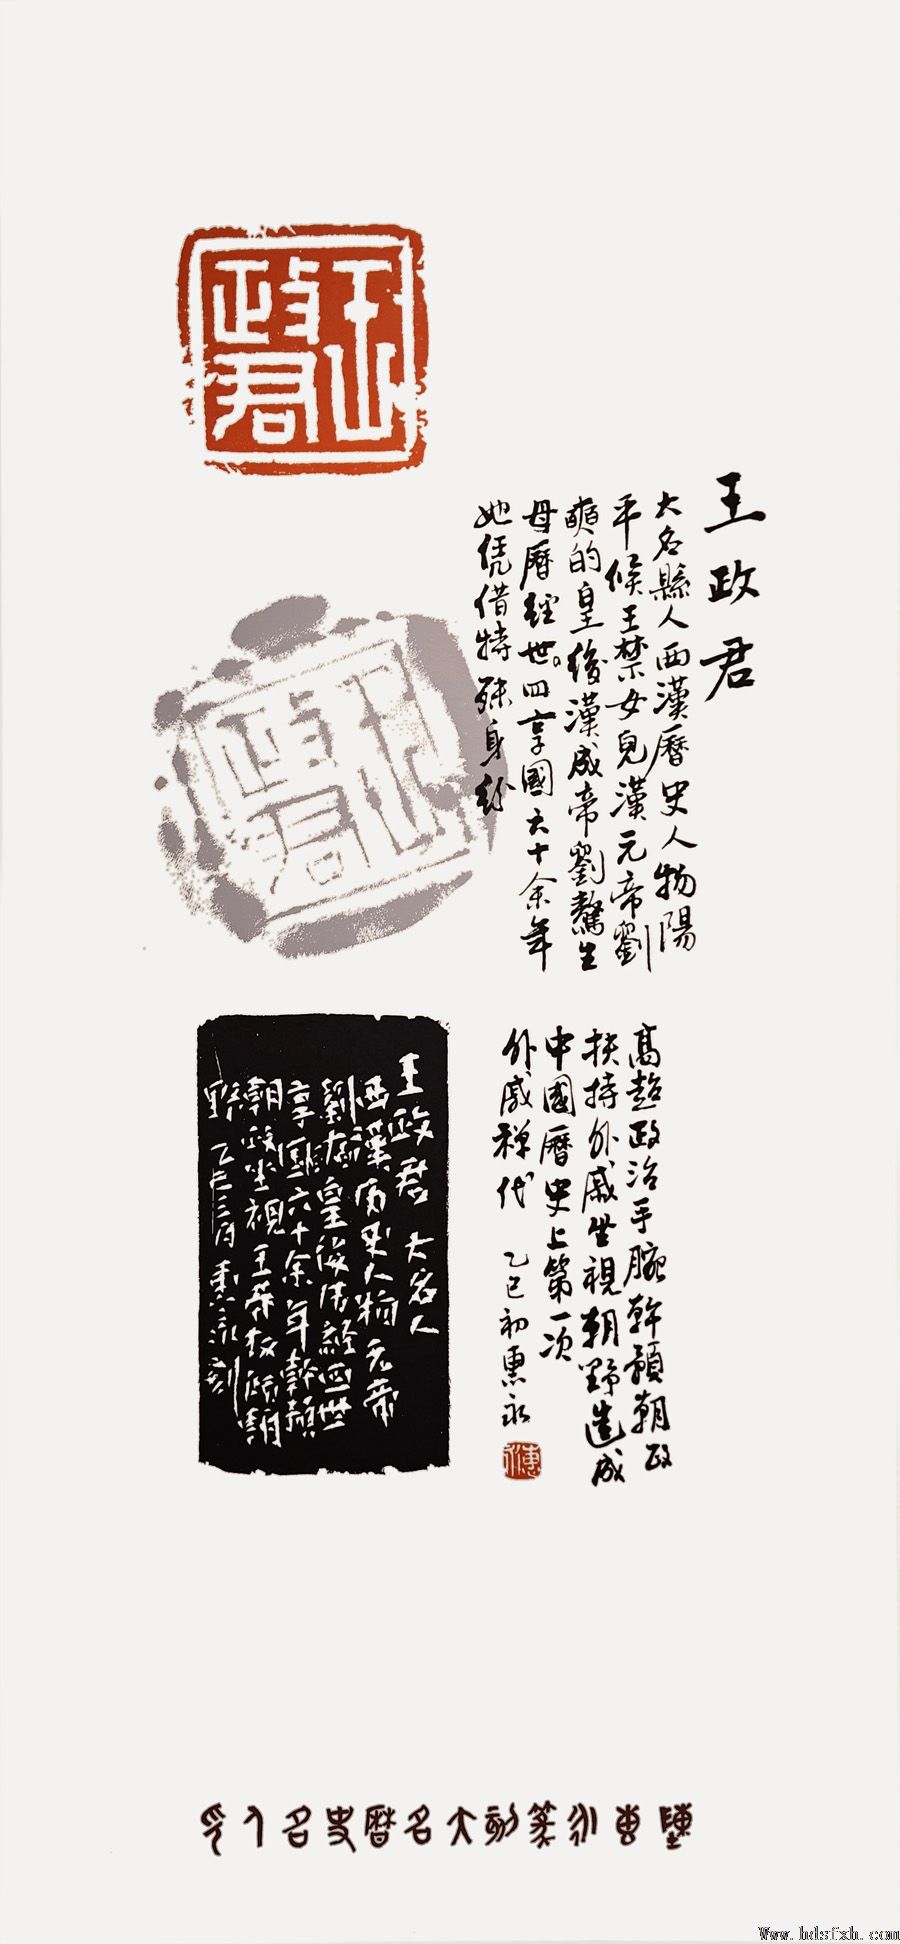 王政君
王政君
大名縣人西漢曆史人物陽
平候王禁女兒漢元帝劉
奭的皇後漢成帝劉驁生
母曆經世四享國六十余年
她凭借特殊身份
高超政治手腕幹預朝政
扶持外戚坐視朝野造成
中國曆史上第一次
外戚禅代 乙巳初惠永
王政君
王政君 大名人
西漢历史人物元帝
劉奭皇後历經四世
享國六十余年幹預
朝政坐視王莽
野 乙巳
陳惠永篆刻大名曆史名人印
Www.hdsfxh.com